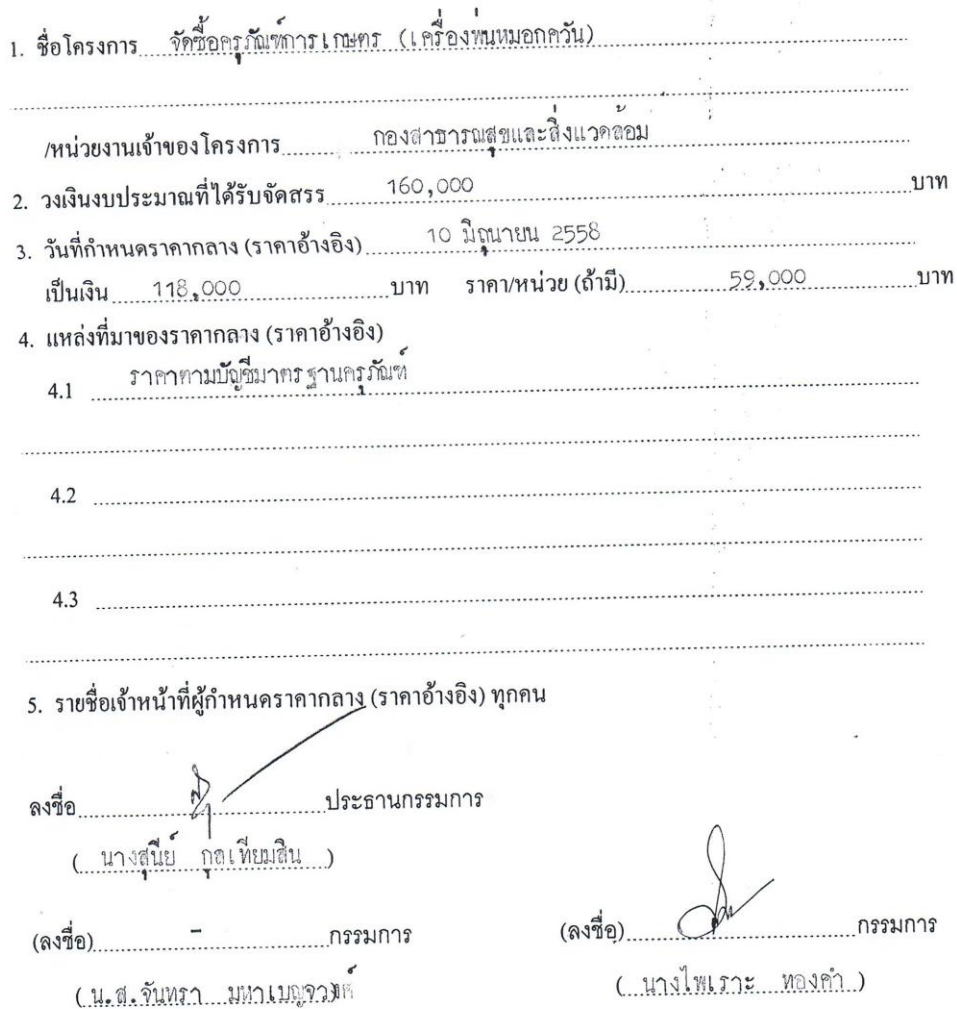 1. ชื่อโครงการ จัดซื้อครุภัณฑ์การเกษตร (เครื่องพ่นหมอกควัน)
/หน่วยงานเจ้าของโครงการ กองสาธารณสุขและสิ่งแวดล้อม
2. วงเงินงบประมาณที่ได้รับจัดสรร 160,000 บาท
3. วันที่กำหนดราคากลาง (ราคาอ้างอิง) 10 มิถุนายน 2558
เป็นเงิน 118,000 บาท ราคา/หน่วย (ถ้ามี) 59,000 บาท
4. แหล่งที่มาของราคากลาง (ราคาอ้างอิง)
4.1 ราคาตามบัญชีมาตรฐานครุภัณฑ์
4.2
4.3
5. รายชื่อเจ้าหน้าที่ผู้กำหนดราคากลาง (ราคาอ้างอิง) ทุกคน
ลงชื่อ ประธานกรรมการ
( นางสุนีย์ กุลเทียมสิน )
(ลงชื่อ) - กรรมการ (ลงชื่อ) กรรมการ
( น.ส.จันทรา มหาเบญจวงศ์ ( นางไพเราะ ทองคำ )